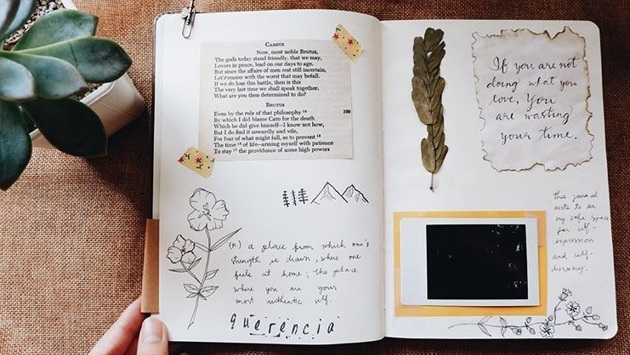 CASSIUS
Now, most noble Brutus,
The gods today stand friendly, that we may,
Lovers in peace, lead on our days to age.
But since the affairs of men rest still incertain,
Let's reason with the worst that may befall.
If we do lose this battle, then is this
The very last time we shall speak together.
What are you then determined to do?
BRUTUS
Even by the rule of that philosophy 14 100
By which I did blame Cato for the death
Which he did give himself—I know not how,
But I do find it cowardly and vile,
For fear of what might fall, so to prevent 15
The time 16 of life—arming myself with patience
To stay 17 the providence of some high powers
(n) a place from which one's
strength is drawn, where one
feels at home; the place
where you are your
most authentic self.
querencia
If you are not
doing what you
love, You
are wasting
your time.
this journal
exists to be
my safe space
for self-
expression
and self-
discovery.